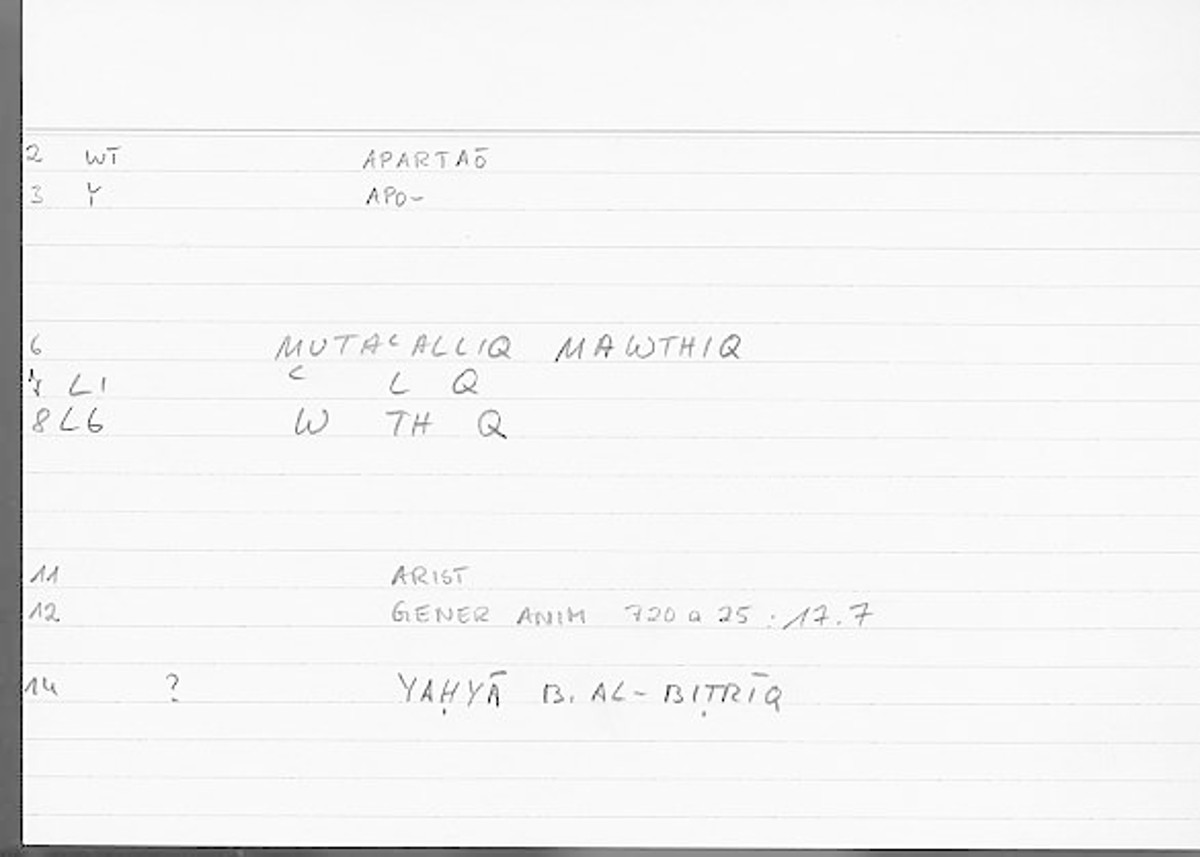 2 WT̄ APARTAŌ
3 Y APO-
6 MUTAʿALLIQ MAWTHIQ
7 L1 ʿ L Q
8 L6 W TH Q
11 ARIST
12 GENER ANIM 720 a 25 : 17.7
14 ? YAḤYĀ B. AL-BIṬRĪQ